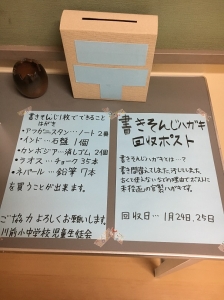 書きそんじ1枚でできること
はがき
・アフガニスタン…ノート2冊
・インド…石盤 1個
・カンボジア…消しゴム2個
・ラオス…チョーク35本
・ネパール…鉛筆7本
を買うことが出来ます。
ご協力よろしくお願いします
川前小中学校児童生徒会
書きそんじハガキ
回収ポスト
書きそんじハガキとは…?
書き間違えてしまた、汚してしまた、
古くて使えないなどの理由でポストに
未投函の官製ハガキです。
回収日…1月24日,25日